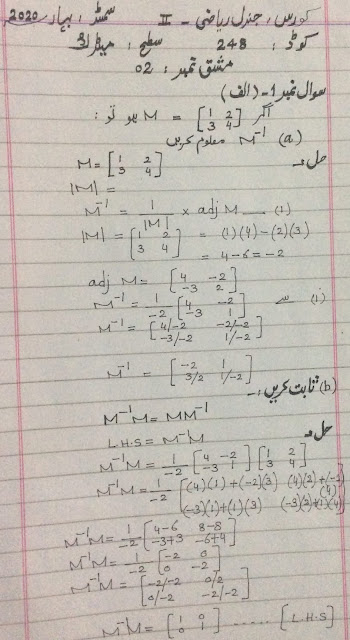 کورس: جنرل ریاضی - II سمسٹر: بہار 2020
کوڈ: 248 سطح: میٹرک
مشق نمبر: 02
سوال نمبر 1- (الف)
اگر M = [1 2; 3 4] ہو تو:
(a) M⁻¹ معلوم کریں
حل:-
M = [1 2; 3 4]
|M| =
M⁻¹ = 1/|M| × adj M — (1)
|M| = [1 2; 3 4] = (1)(4) - (2)(3)
= 4 - 6 = -2
adj M = [4 -2; -3 2]
M⁻¹ = 1/-2 [4 -2; -3 1] سے (i)
M⁻¹ = [4/-2 -2/-2; -3/-2 1/-2]
M⁻¹ = [-2 1; 3/2 1/-2]
(b) ثابت کریں:-
M⁻¹M = MM⁻¹
حل:-
L.H.S = M⁻¹M
M⁻¹M = 1/-2 [4 -2; -3 1] [1 2; 3 4]
M⁻¹M = 1/-2 [(4)(1)+(-2)(3) (4)(2)+(-2)(4); (-3)(1)+(1)(3) (-3)(2)+(1)(4)]
M⁻¹M = 1/-2 [4-6 8-8; -3+3 -6+4]
M⁻¹M = 1/-2 [-2 0; 0 -2]
M⁻¹M = [-2/-2 0/2; 0/-2 -2/-2]
M⁻¹M = [1 0; 0 1] ..... [L.H.S]